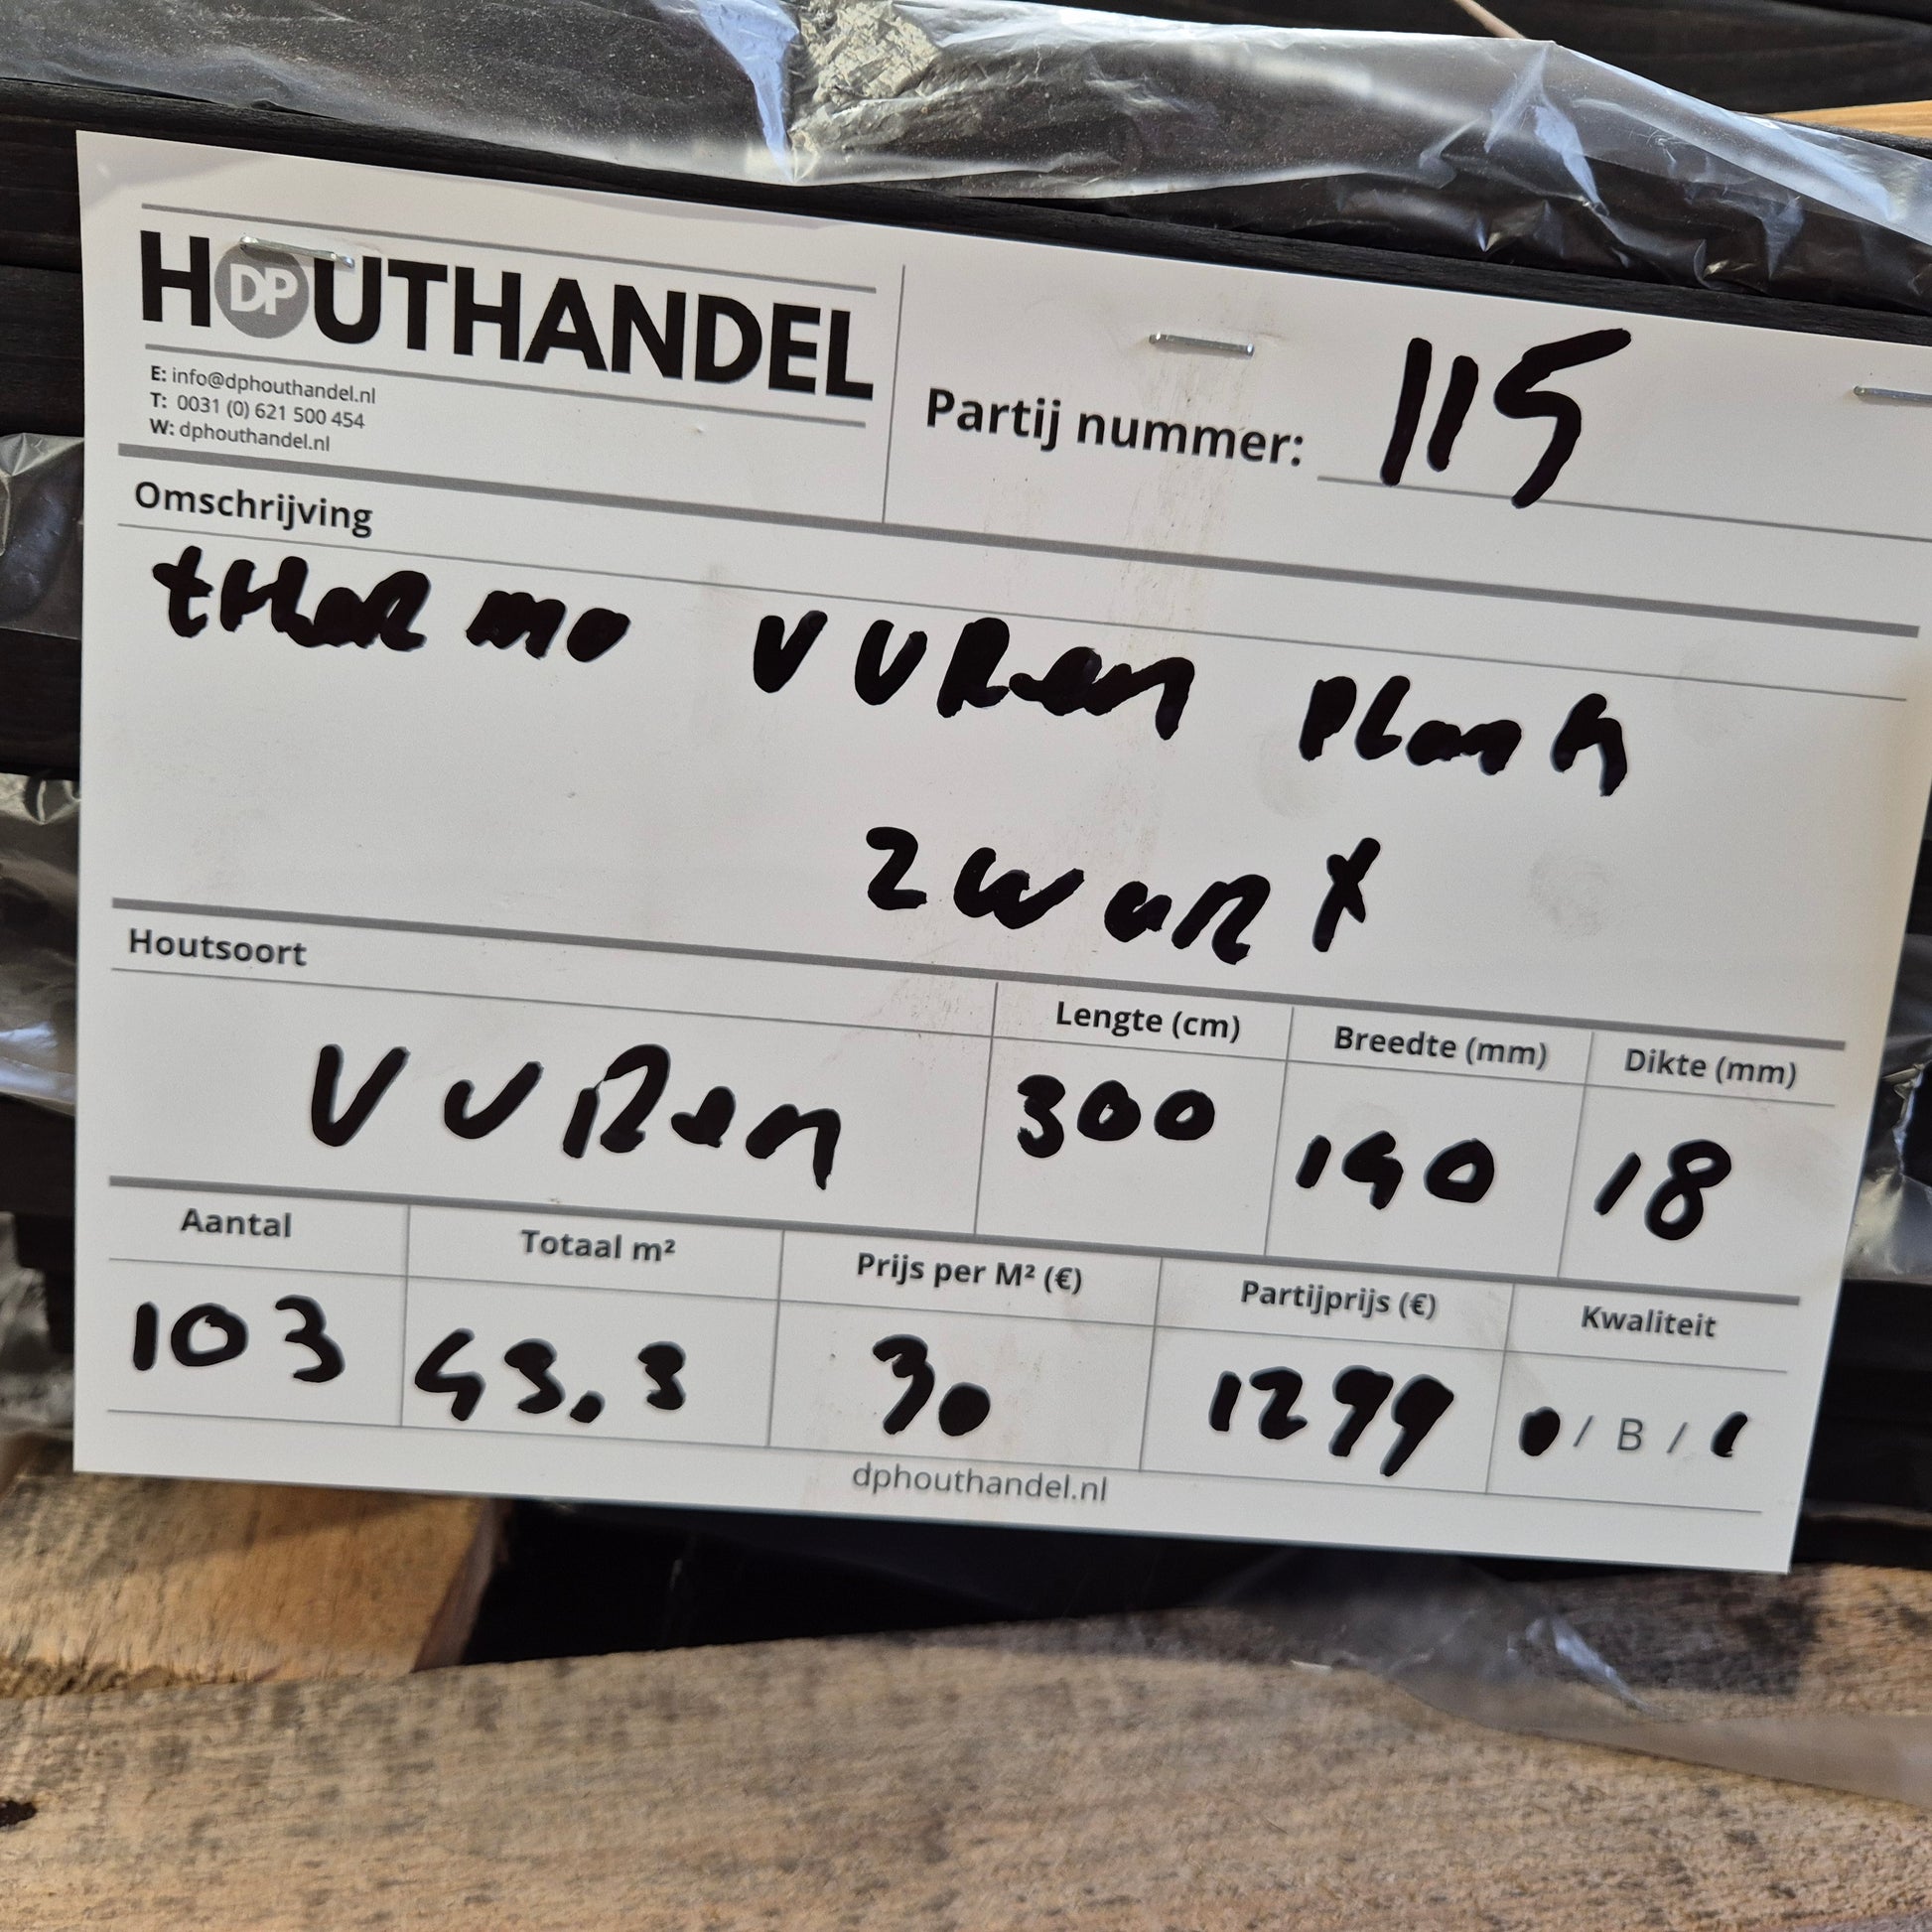 HOUTHANDEL
DP
E: info@dphouthandel.nl
T: 0031 (0) 621 500 454
W: dphouthandel.nl
Partij nummer: 115
Omschrijving
tHeRmo VURen PLank
zwaRt
Houtsoort
Lengte (cm) Breedte (mm) Dikte (mm)
VURen 300 140 18
Aantal Totaal m² Prijs per M² (€) Partijprijs (€) Kwaliteit
103 43,3 30 1299 / B /
dphouthandel.nl